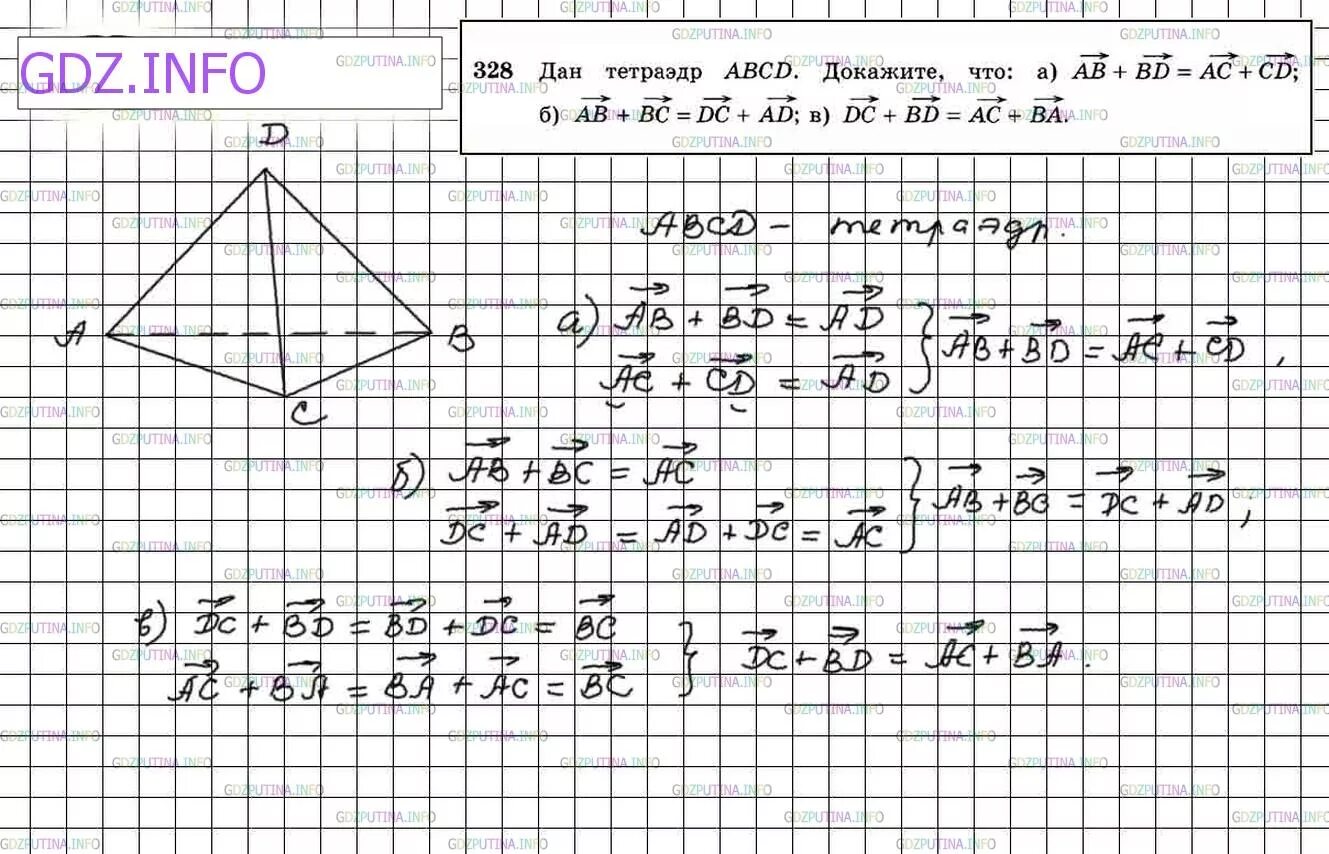 GDZ.INFO
328 Дан тетраэдр ABCD. Докажите, что: а) AB + BD = AC + CD;
б) AB + BC = DC + AD; в) DC + BD = AC + BA.
D
A
B
C
ABCD – тетраэдр.
а) AB + BD = AD
AC + CD = AD
AB + BD = AC + CD,
б) AB + BC = AC
DC + AD = AD + DC = AC
AB + BC = DC + AD;
в) DC + BD = BD + DC = BC
AC + BA = BA + AC = BC
DC + BD = AC + BA.
GDZPUTINA.INFO